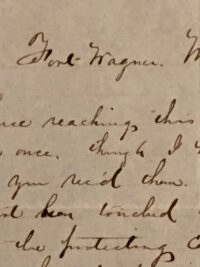 Fort-Wagner.
reaching this
once. though I
you rec'd them.
been touched
the protecting